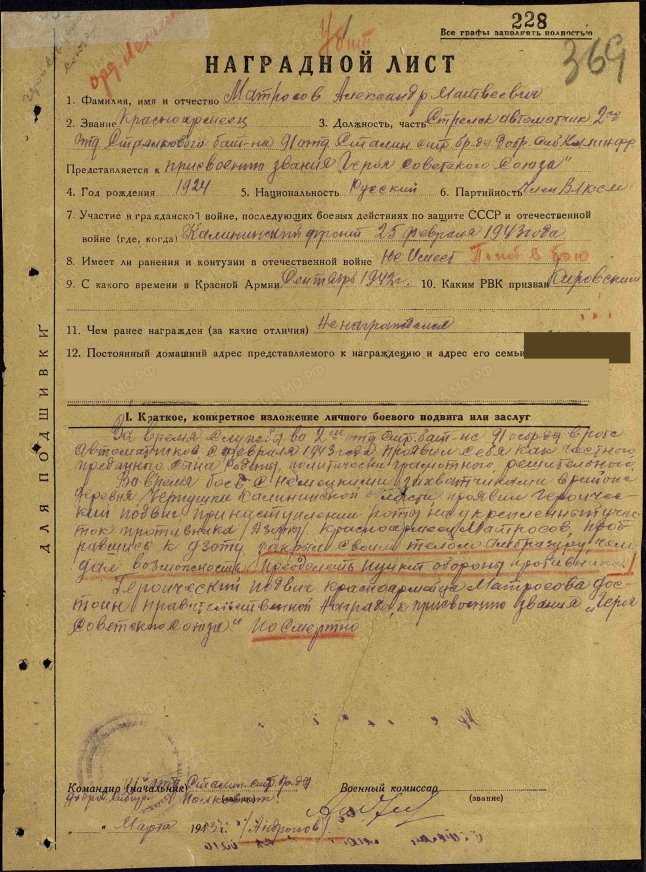 228
Все графы заполнять полностью
369
Убит
орд. Ленина
НАГРАДНОЙ ЛИСТ
1. Фамилия, имя и отчество Матросов Александр Матвеевич
2. Звание Красноармеец 3. Должность, часть Стрелок автоматчик 2го
отд. Стрелкового бат-на 91 отд. Сталин. стр. бр-ды добр.
Представляется к присвоению звания "Героя Советского Союза"
4. Год рождения 1924 5. Национальность Русский 6. Партийность Член ВЛКСМ
7. Участие в гражданской войне, последующих боевых действиях по защите СССР и отечественной
войне (где, когда) Калининский фронт 25 февраля 1943 года
8. Имеет ли ранения и контузии в отечественной войне Не имеет Погиб в бою
9. С какого времени в Красной Армии Сентябрь 1942 г. 10. Каким РВК призван Кировским
11. Чем ранее награжден (за какие отличия) Не награждался
12. Постоянный домашний адрес представляемого к награждению и адрес его семьи
I. Краткое, конкретное изложение личного боевого подвига или заслуг
За время службы во 2-м отд. стр. бат-не 91 осбр в роте
Автоматчиков с февраля 1943 года проявил себя как честного
преданного сына Родины, политически грамотного, решительного,
Во время боев с немецкими захватчиками в районе
деревня Чернушки Калининской области проявил героичес-
кий подвиг при наступлении роты на укрепленный учас-
ток противника /Дзоты/ красноармеец Матросов, проб-
равшись к дзоту закрыл своим телом амбразуру, чем
дал возможность преодолеть пункт обороны противника!
Героический подвиг красноармейца Матросова дос-
тоин правительственной награды, к присвоению звания "Героя
Советского Союза" Посмертно
ДЛЯ ПОДШИВКИ
Командир (начальник) 91 отд. Сталин. стр. бр-ды
Военный комиссар
добр. сибир. Полковник
(звание)
(звание)
" " Марта 1943 г. /Андронов/